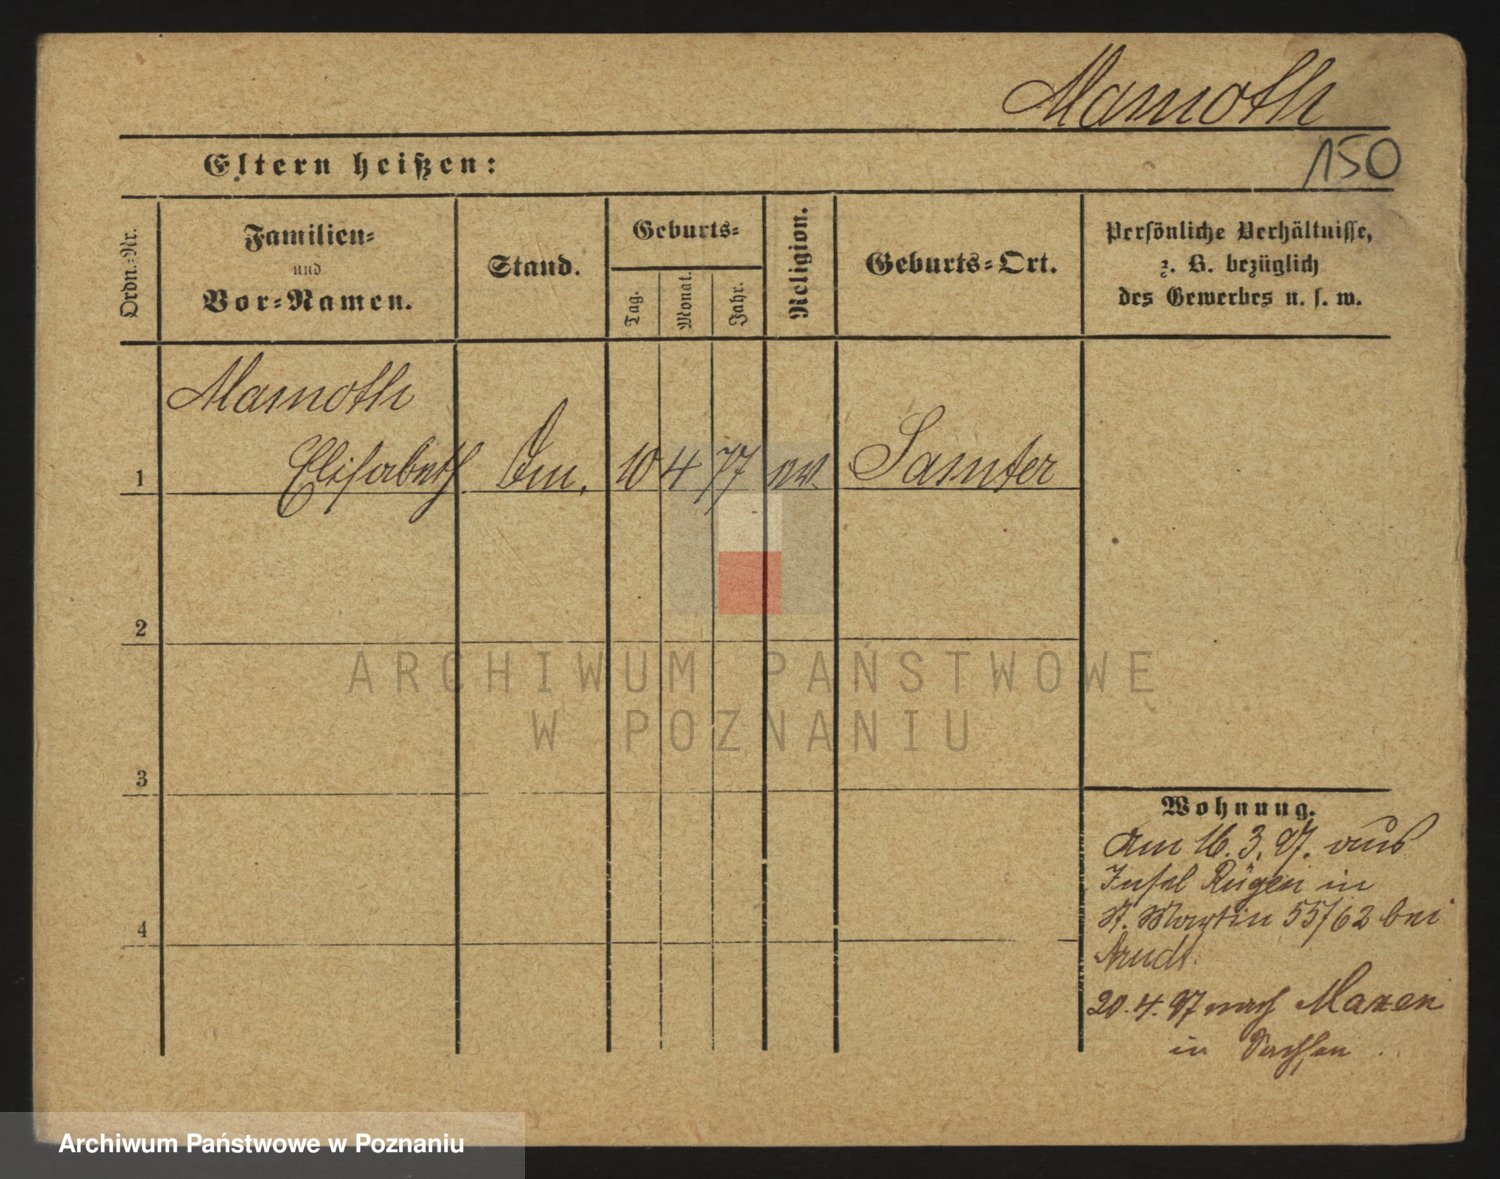 Mamoth
150
Eltern heißen:
Ordn.-Nr.
Familien-
und
Vor-Namen.
Stand.
Geburts-
Tag.
Monat.
Jahr.
Religion.
Geburts-Ort.
Persönliche Verhältnisse,
z. B. bezüglich
des Gewerbes u. s. w.
Mamoth
1 Elisabeth 10 4 77 ev. Samter
2
3
4
Wohnung.
Am 16. 3. 97. aus
Insel Rügen in
St. Martin 55/62 bei
Arndt.
20. 4. 97 nach Maxen
in Sachsen.
ARCHIWUM PAŃSTWOWE
W POZNANIU
Archiwum Państwowe w Poznaniu